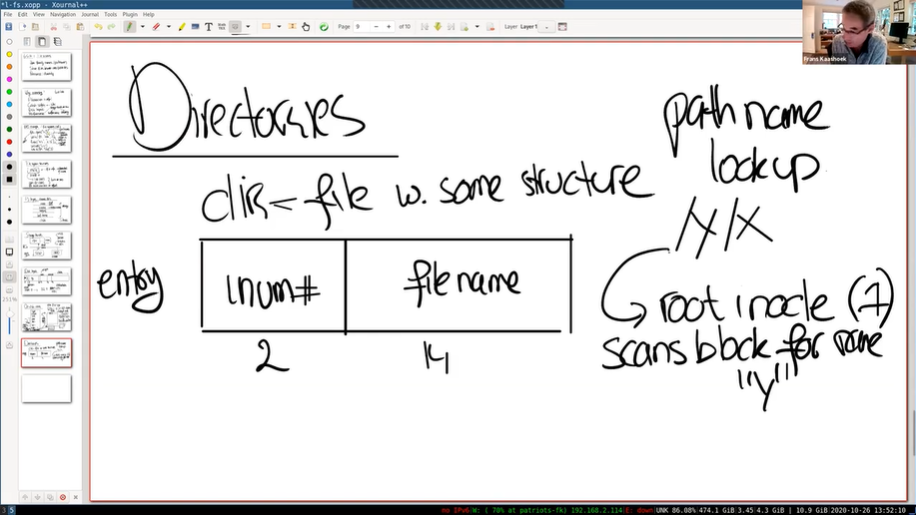 *l-fs.xopp - Xournal++
File Edit View Navigation Journal Tools Plugin Help
Page 9 of 10 Layer Layer 1
Frans Kaashoek
Directories
dir = file w. some structure
entry
inum# filename
2 14
pathname
lookup
/y/x
root inode (1)
scans block for name
"y"
251%
3 5
no IPv6 W: ( 70% at patriots-fk) 192.168.2.114 E: down UNK 86.08% 474.1 GiB 3.45 4.3 GiB | 10.9 GiB 2020-10-26 13:52:10